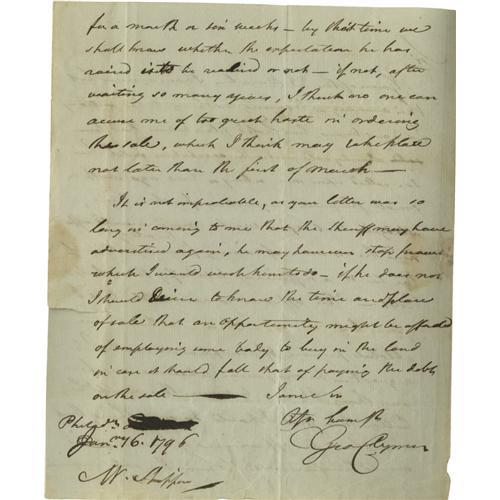 for a month or six weeks — by that time we
shall know whether the expectation he has
raised is to be realised or not — if not, after
waiting so many years, I think no one can
accuse me of too great haste in ordering
the sale, which I think may take place
not later than the first of March —
It is not improbable, as your letter was so
long in coming to me that the Sheriff may have
advertised again, he may however stop
which I would wish him to do — if he does not
I should desire to know the time and place
of sale that an opportunity might be afforded
of employing some body to buy in the land
in case it should fall short of paying the debt
on the sale — I am Sir
Yr humb
Geo Clymer
Philada
Jany 16. 1796
Mr. Shippen